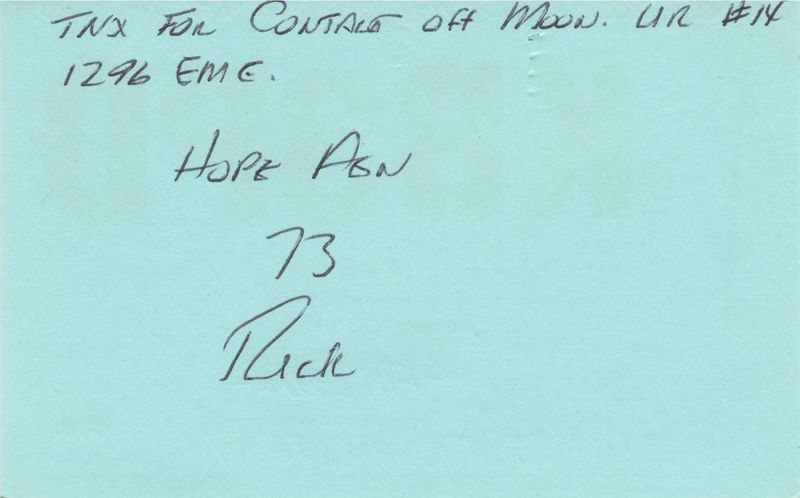 TNX FOR CONTACT OFF MOON. UR #14
1296 EME.
HOPE AGN
73
Rick